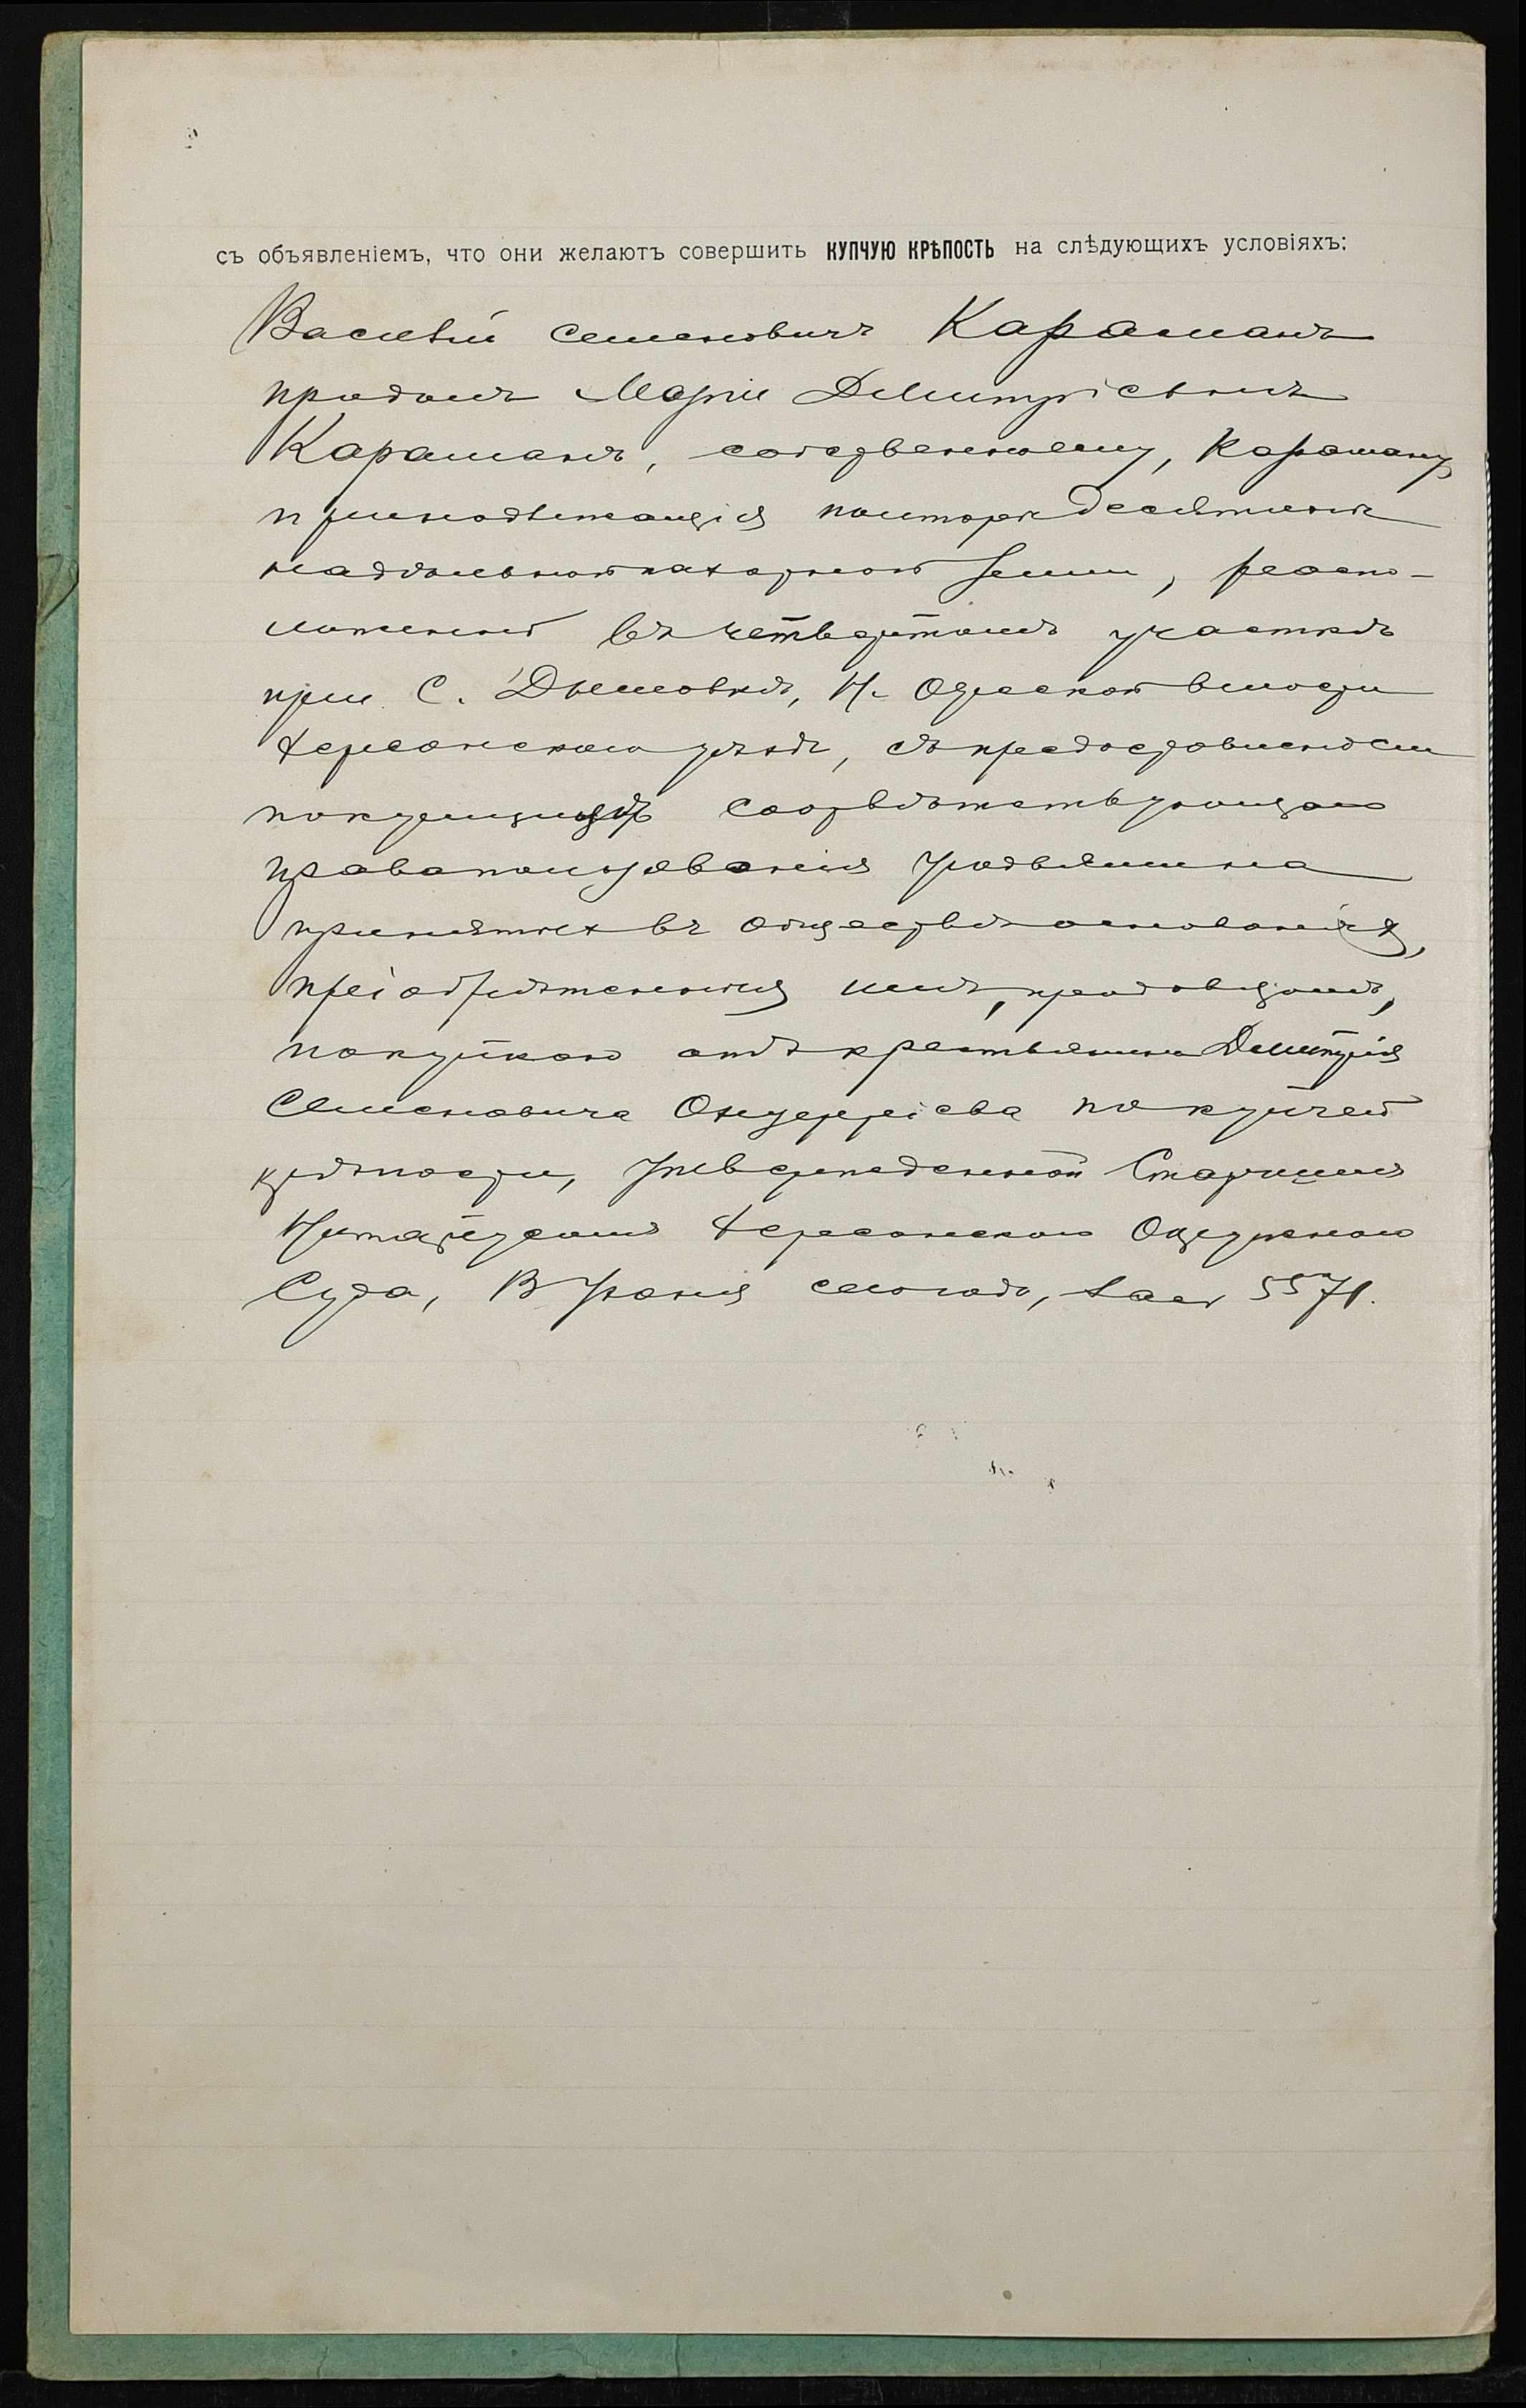 съ объявленіемъ, что они желаютъ совершить КУПЧУЮ КРѢПОСТЬ на слѣдующихъ условіяхъ:
Василій Семеновичъ Караманъ
продалъ Маріи Димитріевнѣ
Караманъ, собственныя, Караману
принадлежащія полторы десятины
надѣльной пахотной земли, распо-
ложенной въ четвертомъ участкѣ
при с. Дымовкѣ, Н. Одесской волости
Херсонскаго уѣзда, съ предоставленіемъ
покупщицѣ соотвѣтствующаго
права пользованія угодьями на
принятыхъ въ обществѣ основаніяхъ,
пріобрѣтенныя имъ, продавцомъ,
покупкою отъ крестьянина Димитрія
Семеновича по купчей
крѣпости, утвержденной Старшимъ
Нотаріусомъ Херсонскаго Окружнаго
Суда, сего года, 5571.